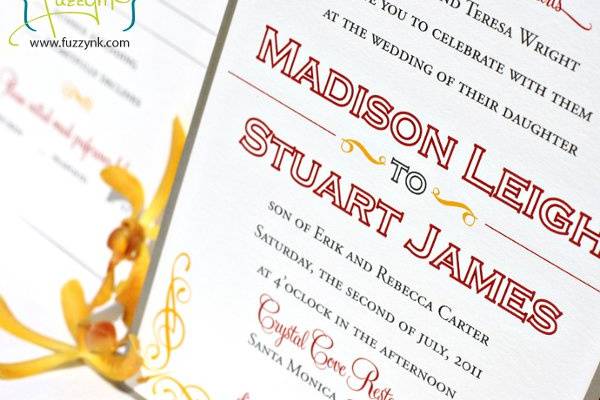 fuzzynk
www.fuzzynk.com
and Teresa Wright
you to celebrate with them
at the wedding of their daughter
Madison Leigh
to
Stuart James
son of Erik and Rebecca Carter
Saturday, the second of July, 2011
at 4'oclock in the afternoon
Crystal Cove
Santa Monica,